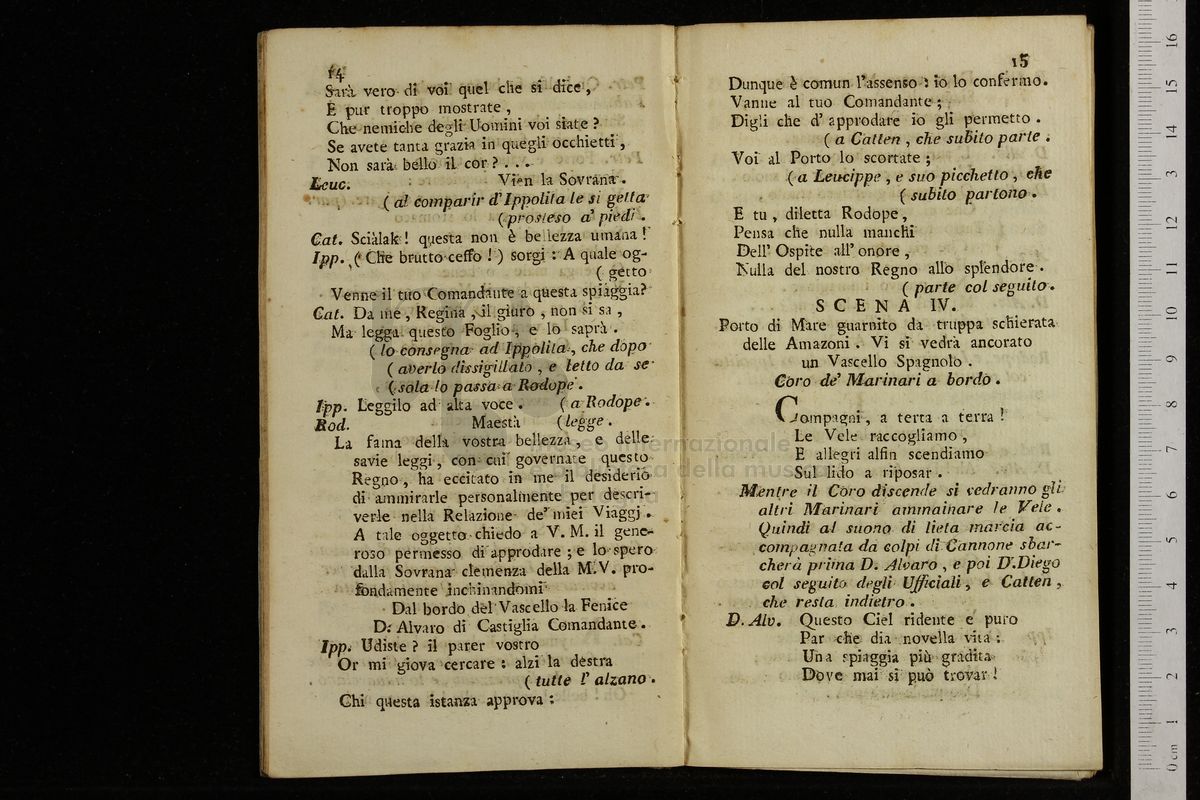 14
Sarà vero di voi quel che si dice,
E pur troppo mostrate,
Che nemiche degli Uomini voi siate?
Se avete tanta grazia in quegli occhietti,
Non sarà bello il cor? . . .
Leuc. Vien la Sovrana.
( al comparir d'Ippolita le si getta
( prosteso a' piedi.
Cat. Scialak! questa non è bellezza umana!
Ipp. ( Che brutto ceffo! ) sorgi: A quale og-
( getto
Venne il tuo Comandante a questa spiaggia?
Cat. Da me, Regina, il giuro, non si sa,
Ma legga questo Foglio, e lo saprà.
( lo consegna ad Ippolita, che dopo
( averlo dissigillato, e letto da se
( sola lo passa a Rodope.
Ipp. Leggilo ad alta voce. ( a Rodope.
Rod. Maestà ( legge.
La fama della vostra bellezza, e delle
savie leggi, con cui governate questo
Regno, ha eccitato in me il desiderio
di ammirarle personalmente per descri-
verle nella Relazione de' miei Viaggj.
A tale oggetto chiedo a V. M. il gene-
roso permesso di approdare; e lo spero
dalla Sovrana clemenza della M.V. pro-
fondamente inchinandomi
Dal bordo del Vascello la Fenice
D. Alvaro di Castiglia Comandante.
Ipp. Udiste? il parer vostro
Or mi giova cercare: alzi la destra
( tutte l' alzano.
Chi questa istanza approva:
15
Dunque è comun l'assenso: io lo confermo.
Vanne al tuo Comandante;
Digli che d' approdare io gli permetto.
( a Catten, che subito parte.
Voi al Porto lo scortate;
( a Leucippe, e suo picchetto, che
( subito partono.
E tu, diletta Rodope,
Pensa che nulla manchi
Dell' Ospite all' onore,
Nulla del nostro Regno allo splendore.
( parte col seguito.
SCENA IV.
Porto di Mare guarnito da truppa schierata
delle Amazoni. Vi si vedrà ancorato
un Vascello Spagnolo.
Coro de' Marinari a bordo.
Compagni, a terra a terra!
Le Vele raccogliamo,
E allegri alfin scendiamo
Sul lido a riposar.
Mentre il Coro discende si vedranno gli
altri Marinari ammainare le Vele.
Quindi al suono di lieta marcia ac-
compagnata da colpi di Cannone sbar-
cherà prima D. Alvaro, e poi D. Diego
col seguito degli Ufficiali, e Catten,
che resta indietro.
D. Alv. Questo Ciel ridente e puro
Par che dia novella vita:
Una spiaggia più gradita
Dove mai si può trovar!